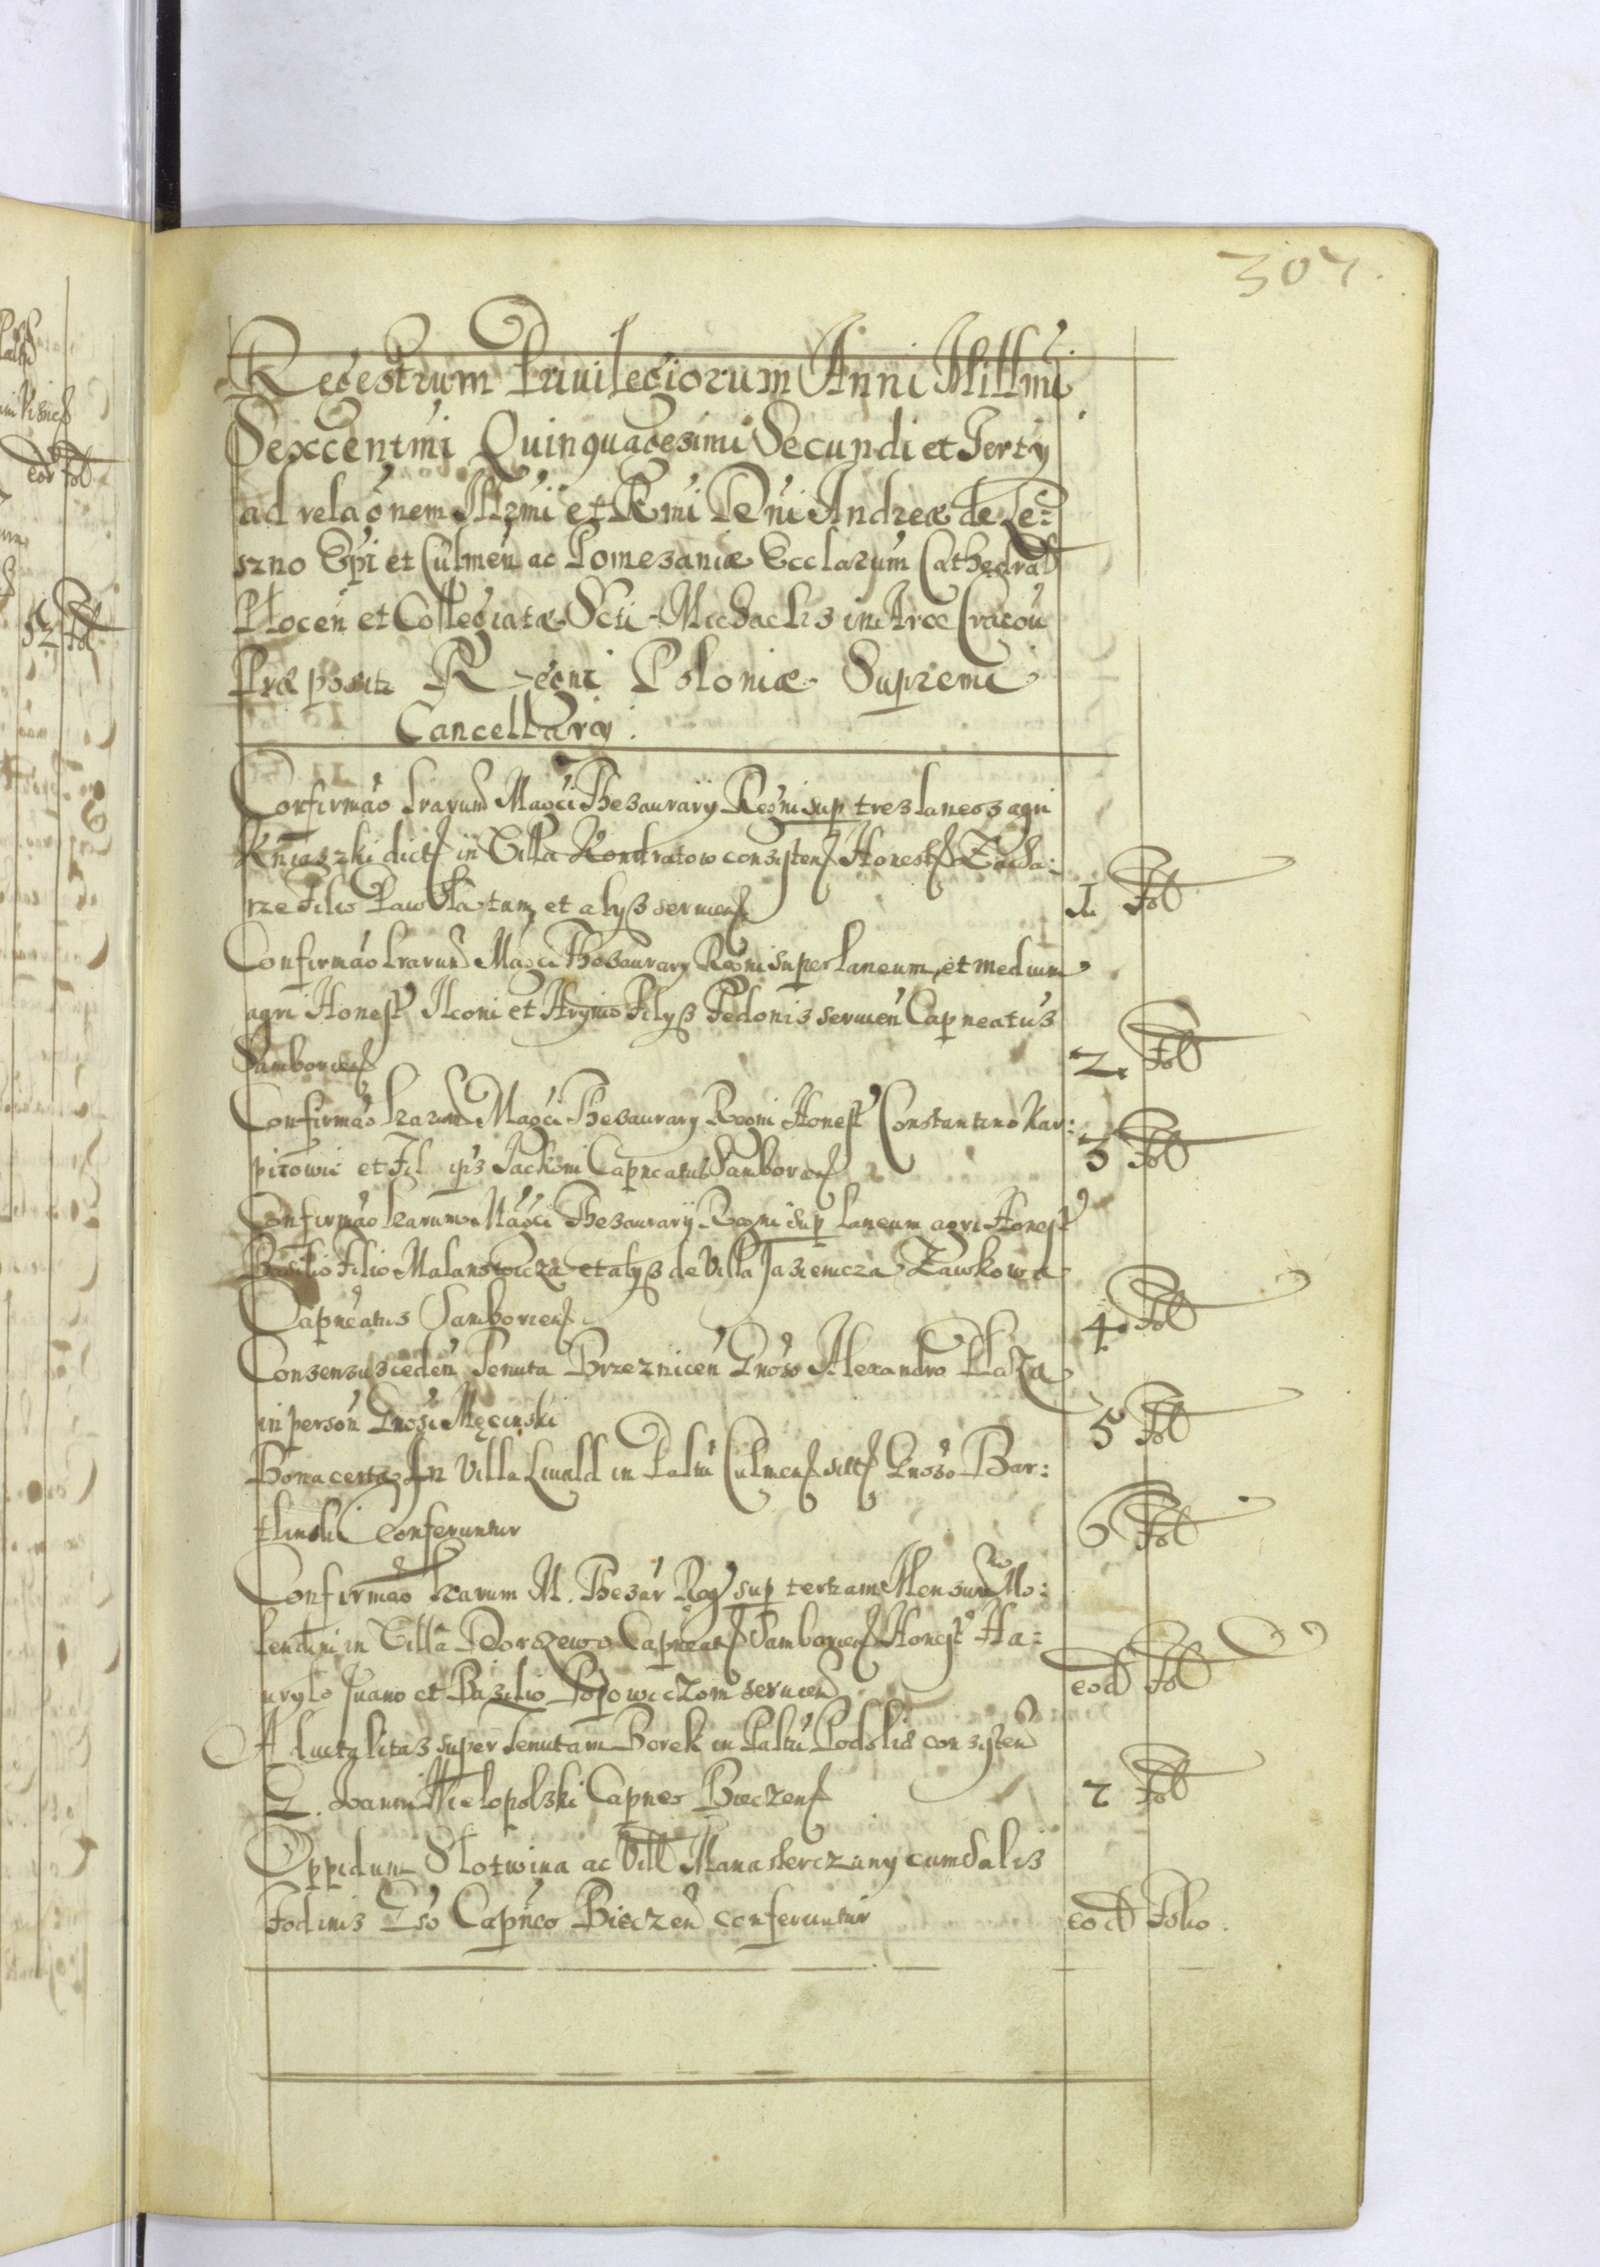 307.
Regestrum Priuilegiorum Anni Millmi
Sexcentmi Quinquagesimi Secundi et Terty
ad relaõnem Illrmi et Rmi Dñi Andreæ de Le:
szno Epi et Culmeñ ac Pomesaniæ Ecclarum Cathedral
Plocen et Collegiatæ Scti Michaelis in Arce Cracou
Præpositi Regni Poloniæ Supremi
Cancellarij.
Confirmao lrarum Magci Thesaurarij Regni sup tres laneos agri
Kniaszki dict in Villa Kondratow consisten Honest Zacha:
rze Filio Paw et alyß seruien 1. Fol
Confirmao lrarum Magci Thesaurary Regni super laneum et medium
agri Honest Ilconi et Hrynio Filyß Fedonis seruien Capneatus
Samborien 2. Fol
Confirmao lrarum Magci Thesaurary Regni Honest Constantino Kar:
pitowic et Fil ips Jackoni Capneatus Samborien 3 Fol
Confirmao lrarum Magci Thesaurarij Regni sup laneum agri Honest
Basilio Filio Malanowicza et alyß de Villa Jasienicza Zawkowa
Capneatus Samborien 4. Fol
Consensus cedeñ Tenuta Brzeznicen Gnoso Alexandro Plaza
in persoñ Gnosi Męcinski 5 Fol
Bona certa In Villa Linald in Paltu Culmen sitt Gnoso Bar:
tlinski Conferuntur 6 Fol
Confirmao lrarum M. Thesar Reg sup tertiam Mensuram Mo:
lendini in Villa Dorozewo Capneat Samborien Honest Ha:
urylo Iuano et Bazilio Popowiczom seruien eod Fol
Aduitalitas super tenutam Borek in Paltu Podolis consisten
G. Joanni Wielopolski Capneo Bieczen 7 Fol
Oppidum Slotwina ac Vill Manasterczany cum Salis
Fodinis Gso Capneo Bieczen conferuntur eod Folio.